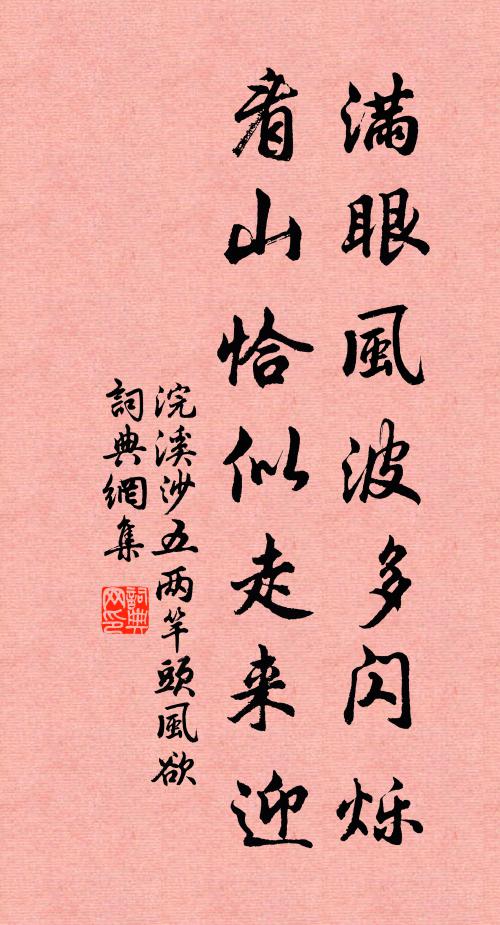 满眼風波多闪烁
看山恰似走来迎
浣溪沙五两竿頭風欲
詞典網集
詞典
网印